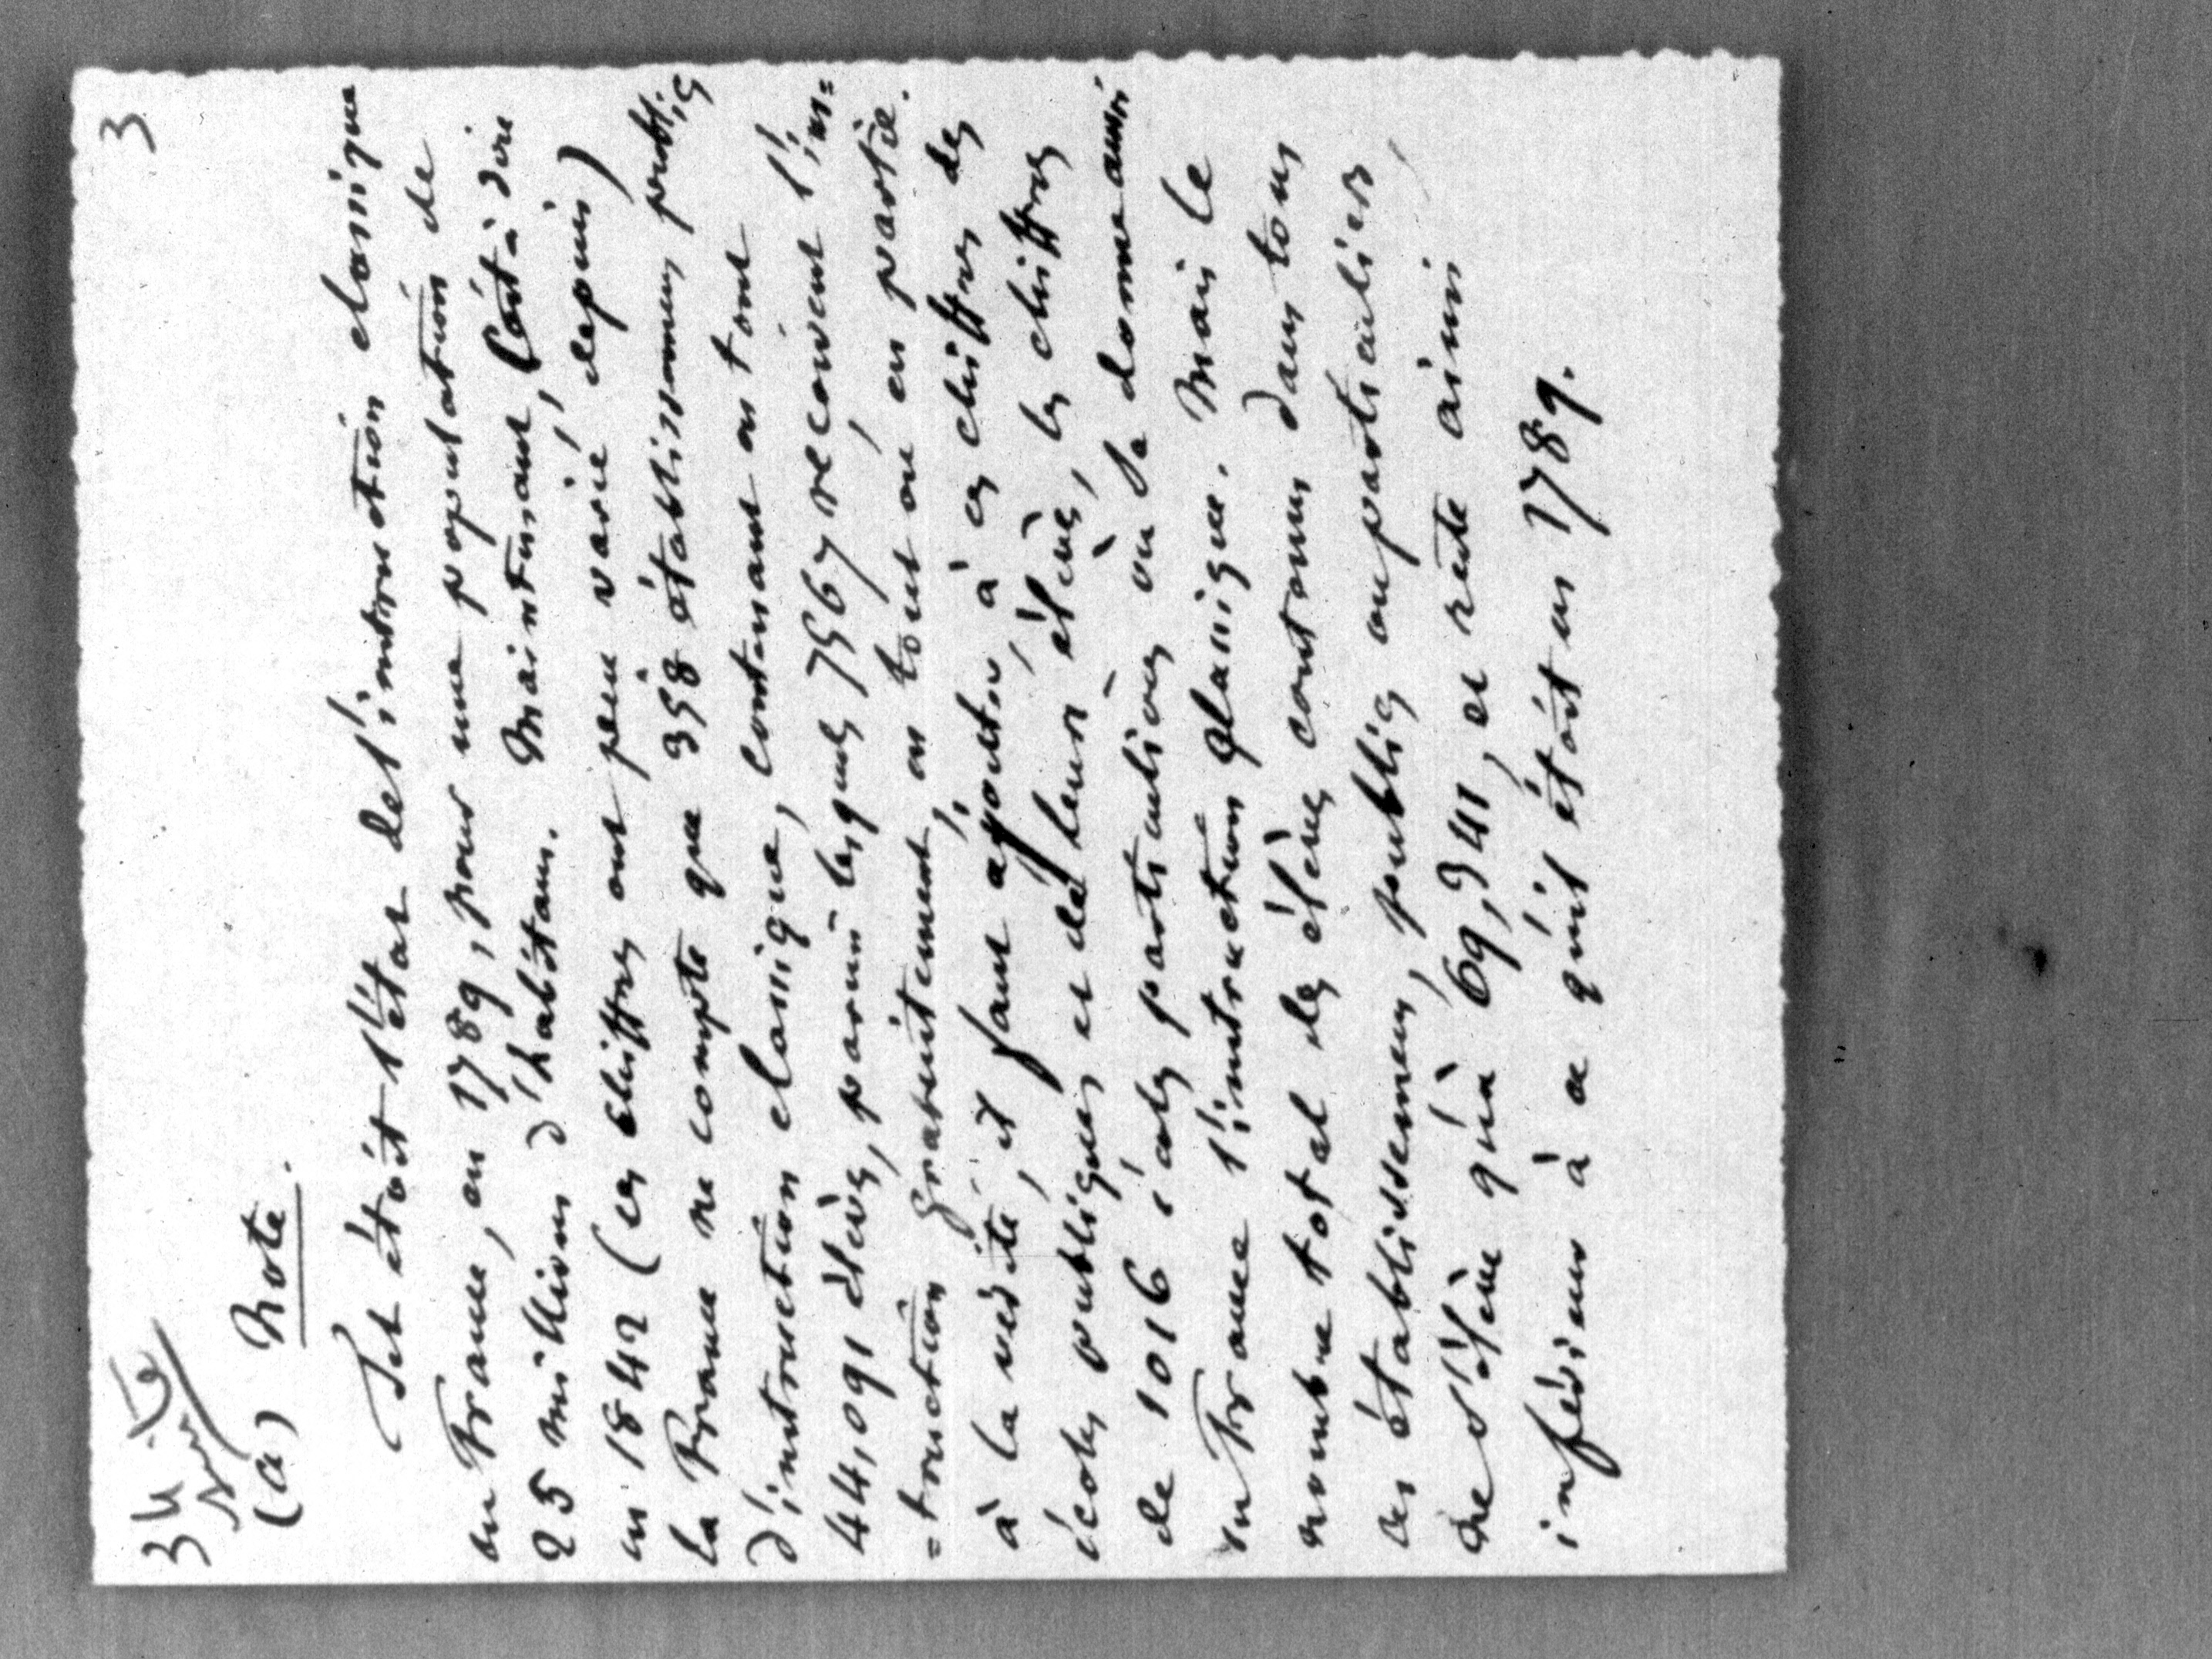 34 suite 3
(a) Note.
Tel étoit l'état de l'instruction classique
en France, en 1789, pour une population de
25 millions d'habitans. Maintenant, (c'est à dire
en 1842 (ces chiffres ont peu varié, depuis)
la France ne compte que 358 établissemens publics
d'instruction classique, contenant en tout
44,091 élèves, parmi lesquels 7567 reçoivent l'ins=
=truction gratuitement, en tout ou en partie.
à la vérité, il faut ajouter, à ces chiffres des
écoles publiques et de leurs élèves, les chiffres
de 1016 écoles particulières où se donne aussi
en France l'instruction classique. Mais le
nombre total des élèves contenus dans tous
ces établissemens, publics ou particuliers,
ne s'élève qu'à 69,341, et reste ainsi
inférieur à ce qu'il étoit en 1789.